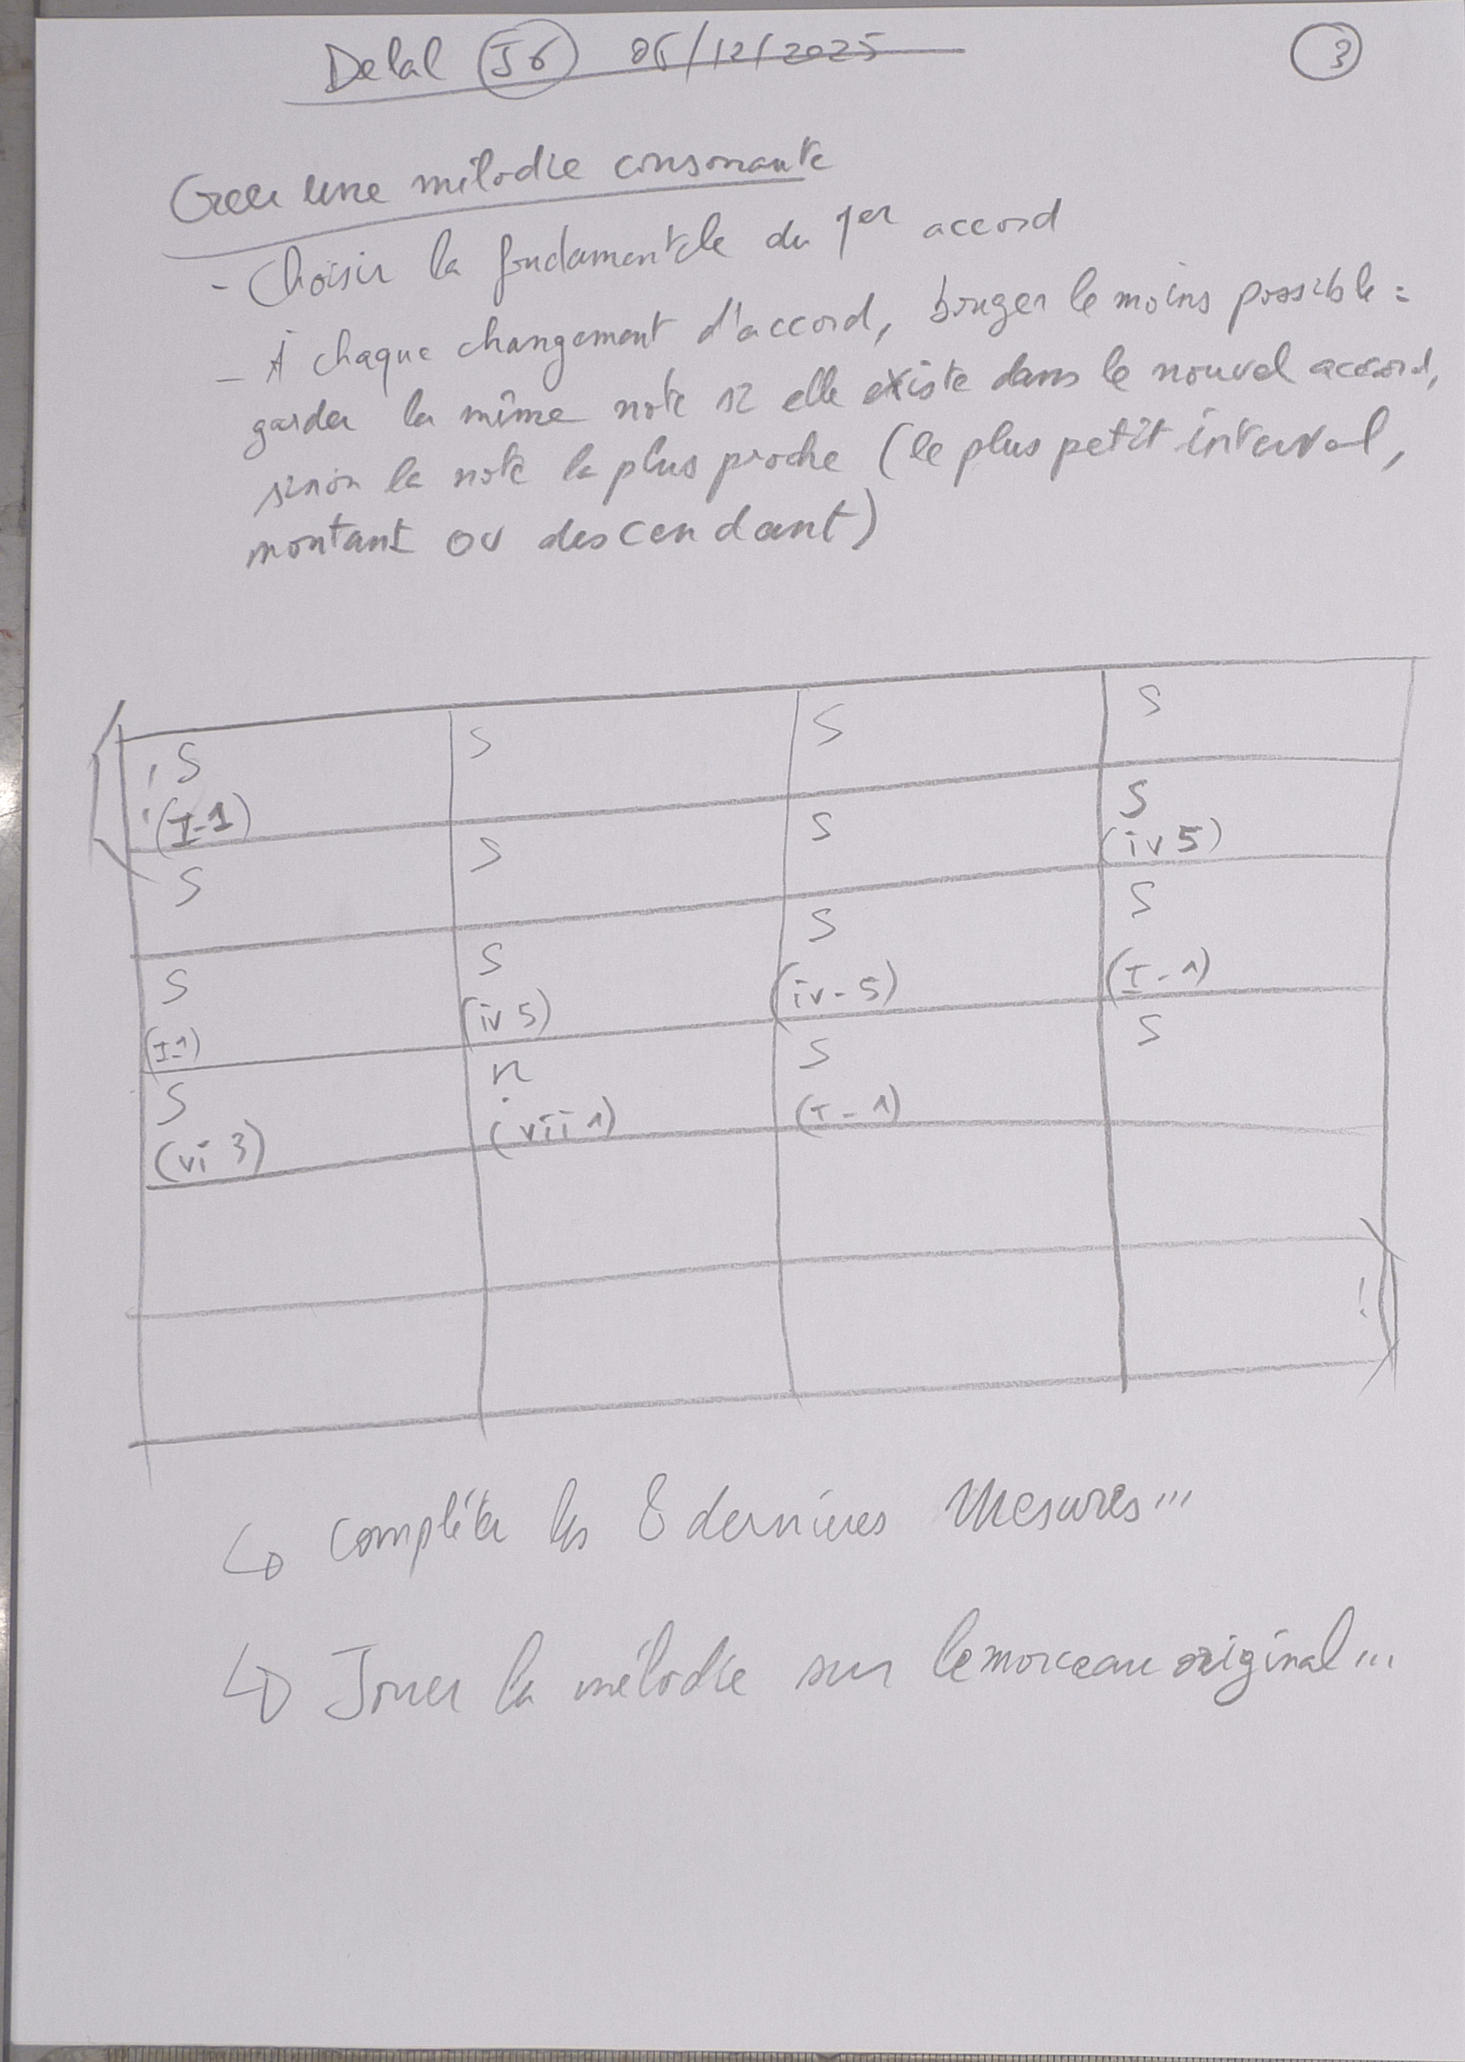 Delal J6 06/12/2025
3
Créer une mélodie consonante
- Choisir la fondamentale du 1er accord
- À chaque changement d'accord, bouger le moins possible :
garder la même note si elle existe dans le nouvel accord,
sinon la note la plus proche (le plus petit interval,
montant ou descendant)
S S S S
(I-1)
S S S S
(iv 5)
S S S S
(I-1) (iv 5) (iv-5) (I-1)
S n S S
(vi 3) (vii 1) (I-1)
↳ compléter les 8 dernières mesures...
↳ Jouer la mélodie sur le morceau original...